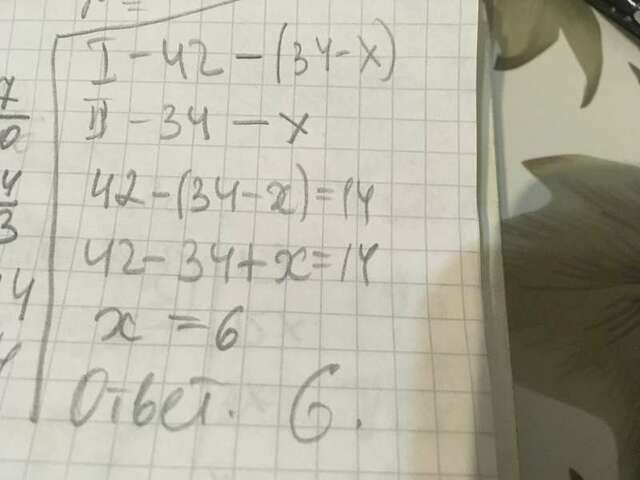 I - 42 - (34-x)
II - 34 - x
42-(34-x)=14
42-34+x=14
x = 6
Ответ. 6.
7
0
4
3
4